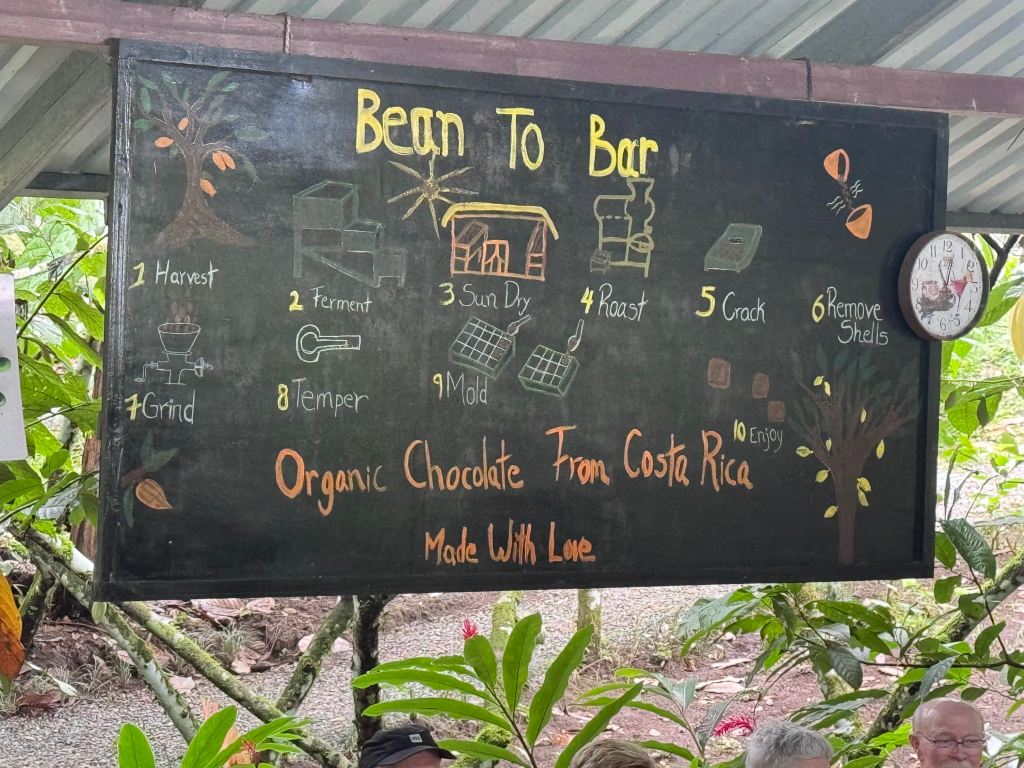 Bean To Bar
1 Harvest
2 Ferment
3 Sun Dry
4 Roast
5 Crack
6 Remove
Shells
7 Grind
8 Temper
9 Mold
10 Enjoy
Organic Chocolate From Costa Rica
Made With Love